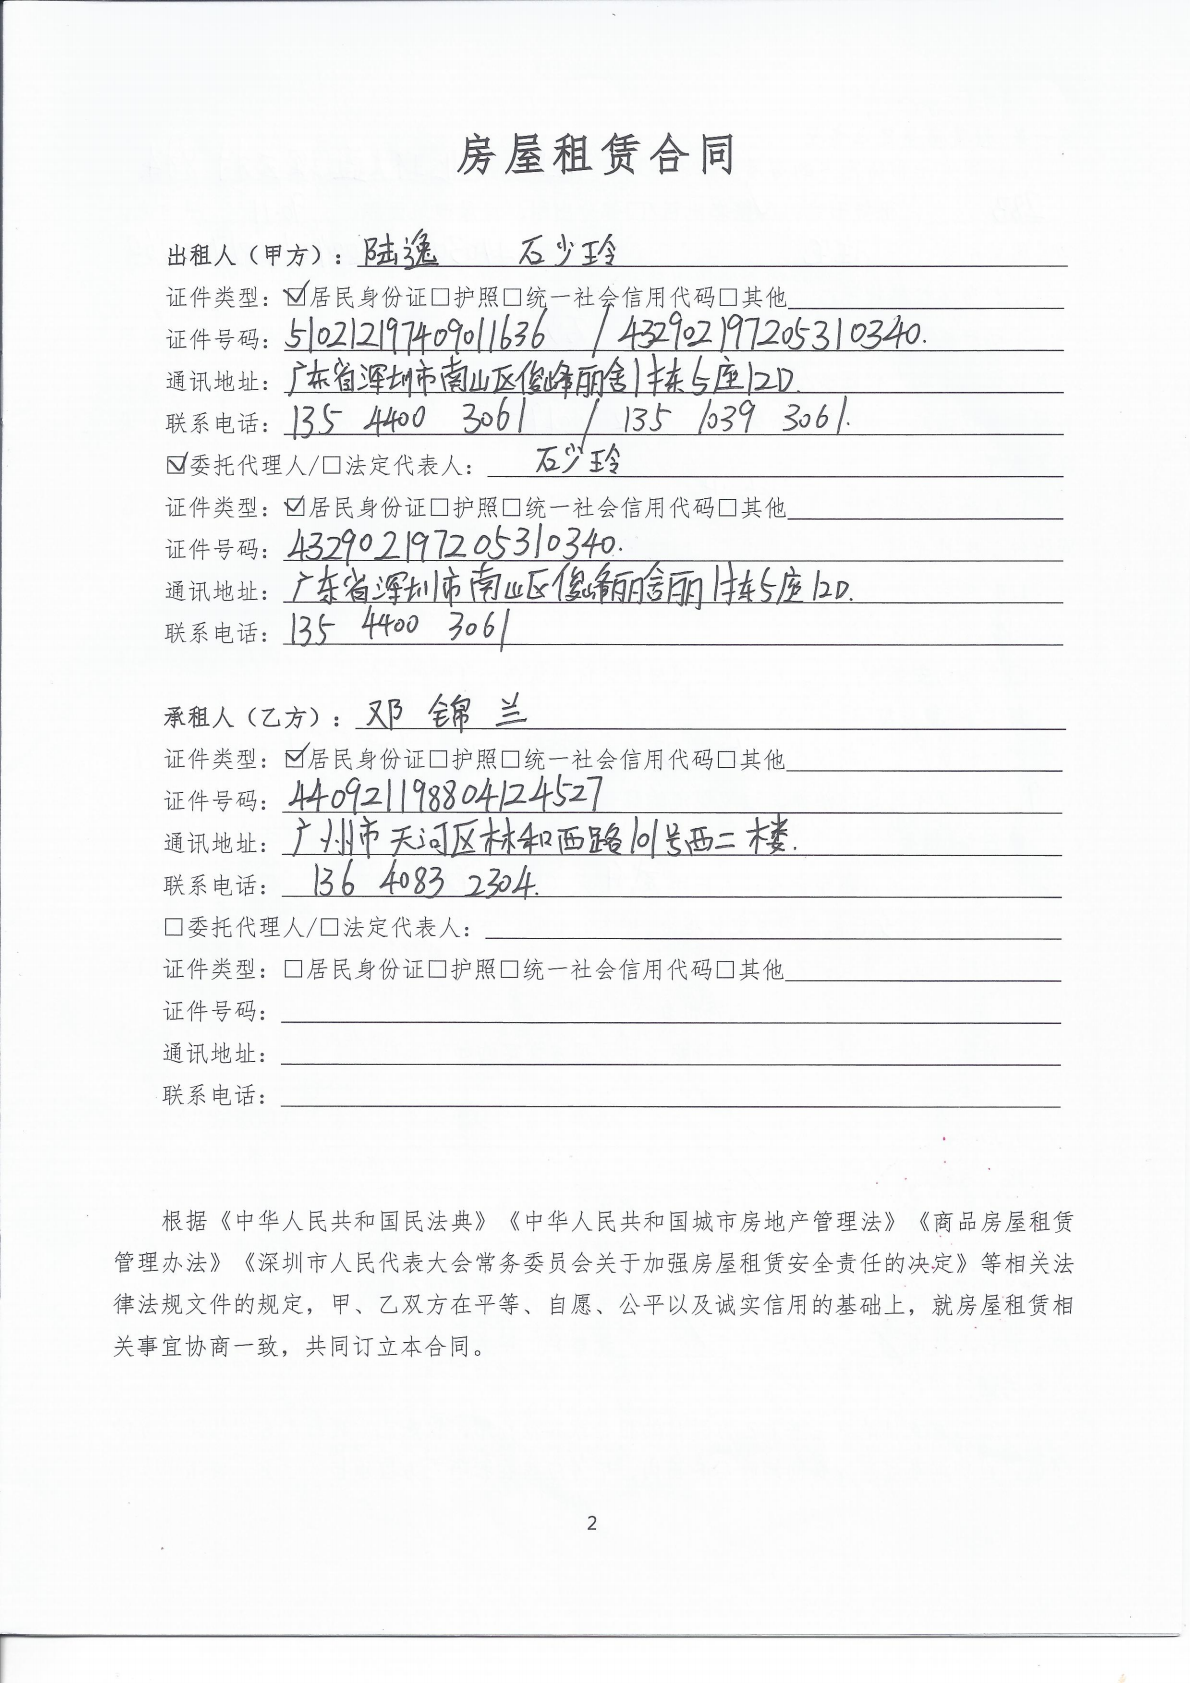 房屋租赁合同
出租人（甲方）：陆逸 石少玲
证件类型：☑居民身份证□护照□统一社会信用代码□其他
证件号码：510212197409011636 / 432902197205310340.
通讯地址：广东省深圳市南山区俊峰丽舍1栋5座12D.
联系电话：135 4400 3061 / 135 1039 3061.
☑委托代理人/□法定代表人： 石少玲
证件类型：☑居民身份证□护照□统一社会信用代码□其他
证件号码：432902197205310340.
通讯地址：广东省深圳市南山区俊峰丽舍丽1栋5座12D.
联系电话：135 4400 3061
承租人（乙方）：邓锦兰
证件类型：☑居民身份证□护照□统一社会信用代码□其他
证件号码：440921198804124527
通讯地址：广州市天河区林和西路101号西二楼.
联系电话：136 4083 2304.
□委托代理人/□法定代表人：
证件类型：□居民身份证□护照□统一社会信用代码□其他
证件号码：
通讯地址：
联系电话：
根据《中华人民共和国民法典》《中华人民共和国城市房地产管理法》《商品房屋租赁
管理办法》《深圳市人民代表大会常务委员会关于加强房屋租赁安全责任的决定》等相关法
律法规文件的规定，甲、乙双方在平等、自愿、公平以及诚实信用的基础上，就房屋租赁相
关事宜协商一致，共同订立本合同。
2